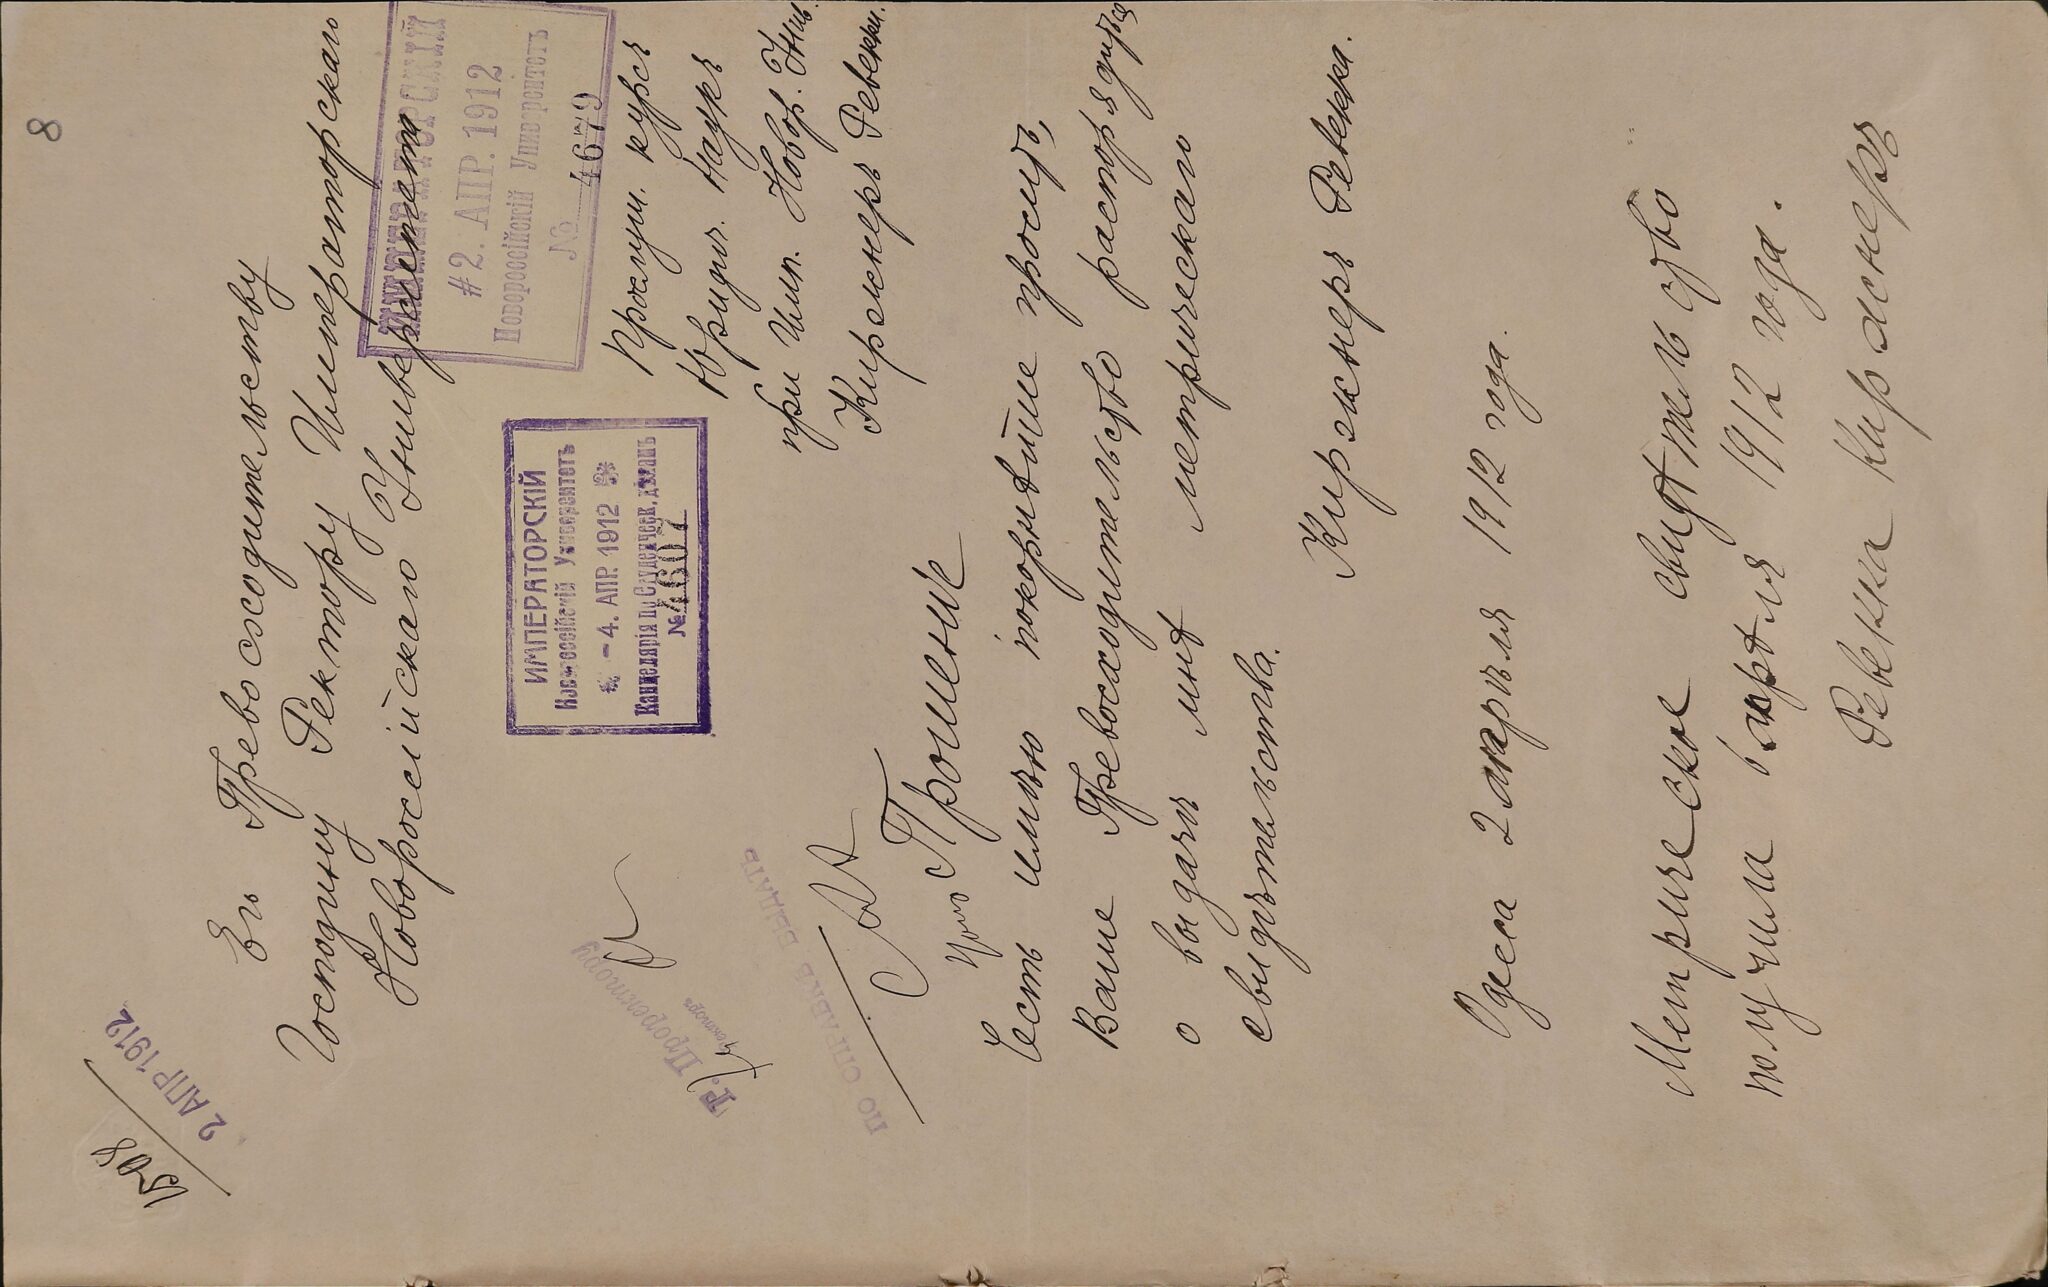 8
1508
2 АПР 1912
Его Превосходительству
Господину Ректору Императорского
Новороссійскаго Университета
ИМПЕРАТОРСКІЙ
# 2. АПР. 1912
Новороссійскій Университетъ
№ 4679
ИМПЕРАТОРСКІЙ
Новороссійскій Университетъ
– 4. АПР. 1912
Канцелярія по Студенческ. дѣламъ
№ 4607
Г. Проректору
Ректоръ
Слуш. курса
Юридич. Наукъ
при Имп. Новор. Унив.
Киржнеръ Ревекки.
ПО СПРАВКѢ ВЫДАТЬ
Прошеніе
Честь имѣю покорнѣйше просить,
Ваше Превосходительство распорядиться
о выдачѣ мнѣ метрическаго
свидѣтельства.
Киржнеръ Ревекка.
Одесса 2 апрѣля 1912 года.
Метрическое свидѣтельство
получила 6 апрѣля 1912 года.
Ревекка Киржнеръ